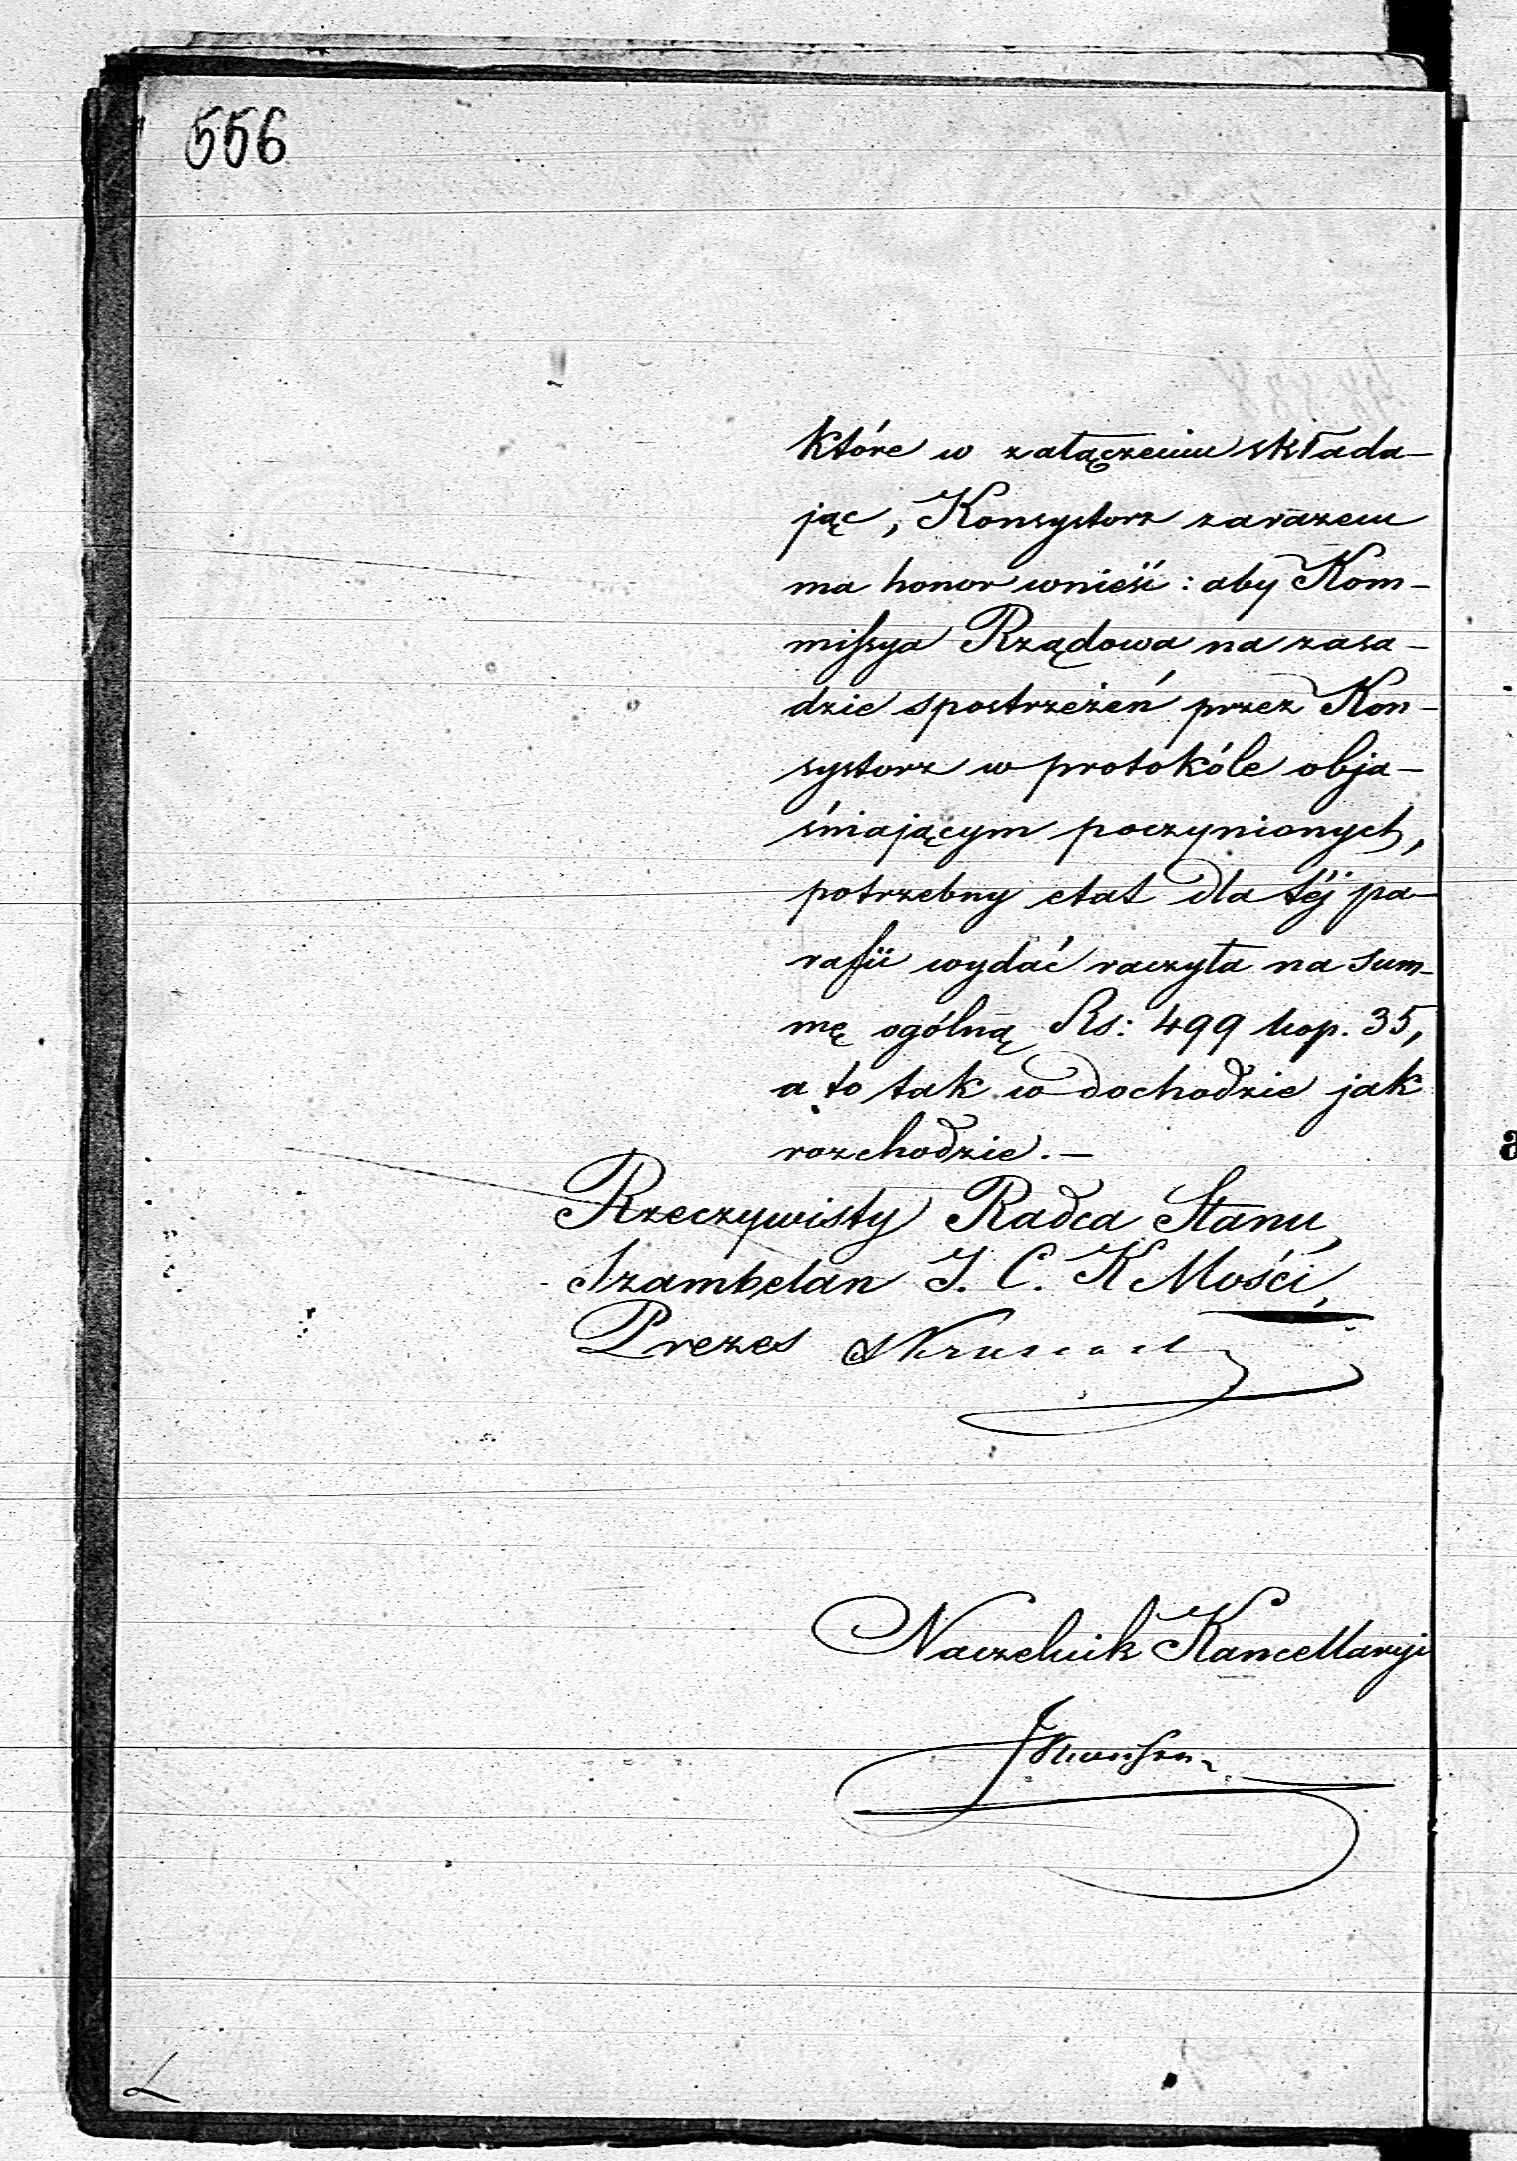 556
które w załączeniu składa-
jąc, Konsystorz zarazem
ma honor wnieść: aby Kom-
missya Rządowa na zasa-
dzie spostrzeżeń przez Kon-
systorz w protokóle obja-
śniającym poczynionych,
potrzebny etat dla téj pa-
rafii wydać raczyła na sum-
mę ogólną Rs: 499 kop. 35,
a to tak w dochodzie jak
rozchodzie.-
Rzeczywisty Radca Stanu,
Szambelan J. C. K Mości,
Prezes
Naczelnik Kancellaryi